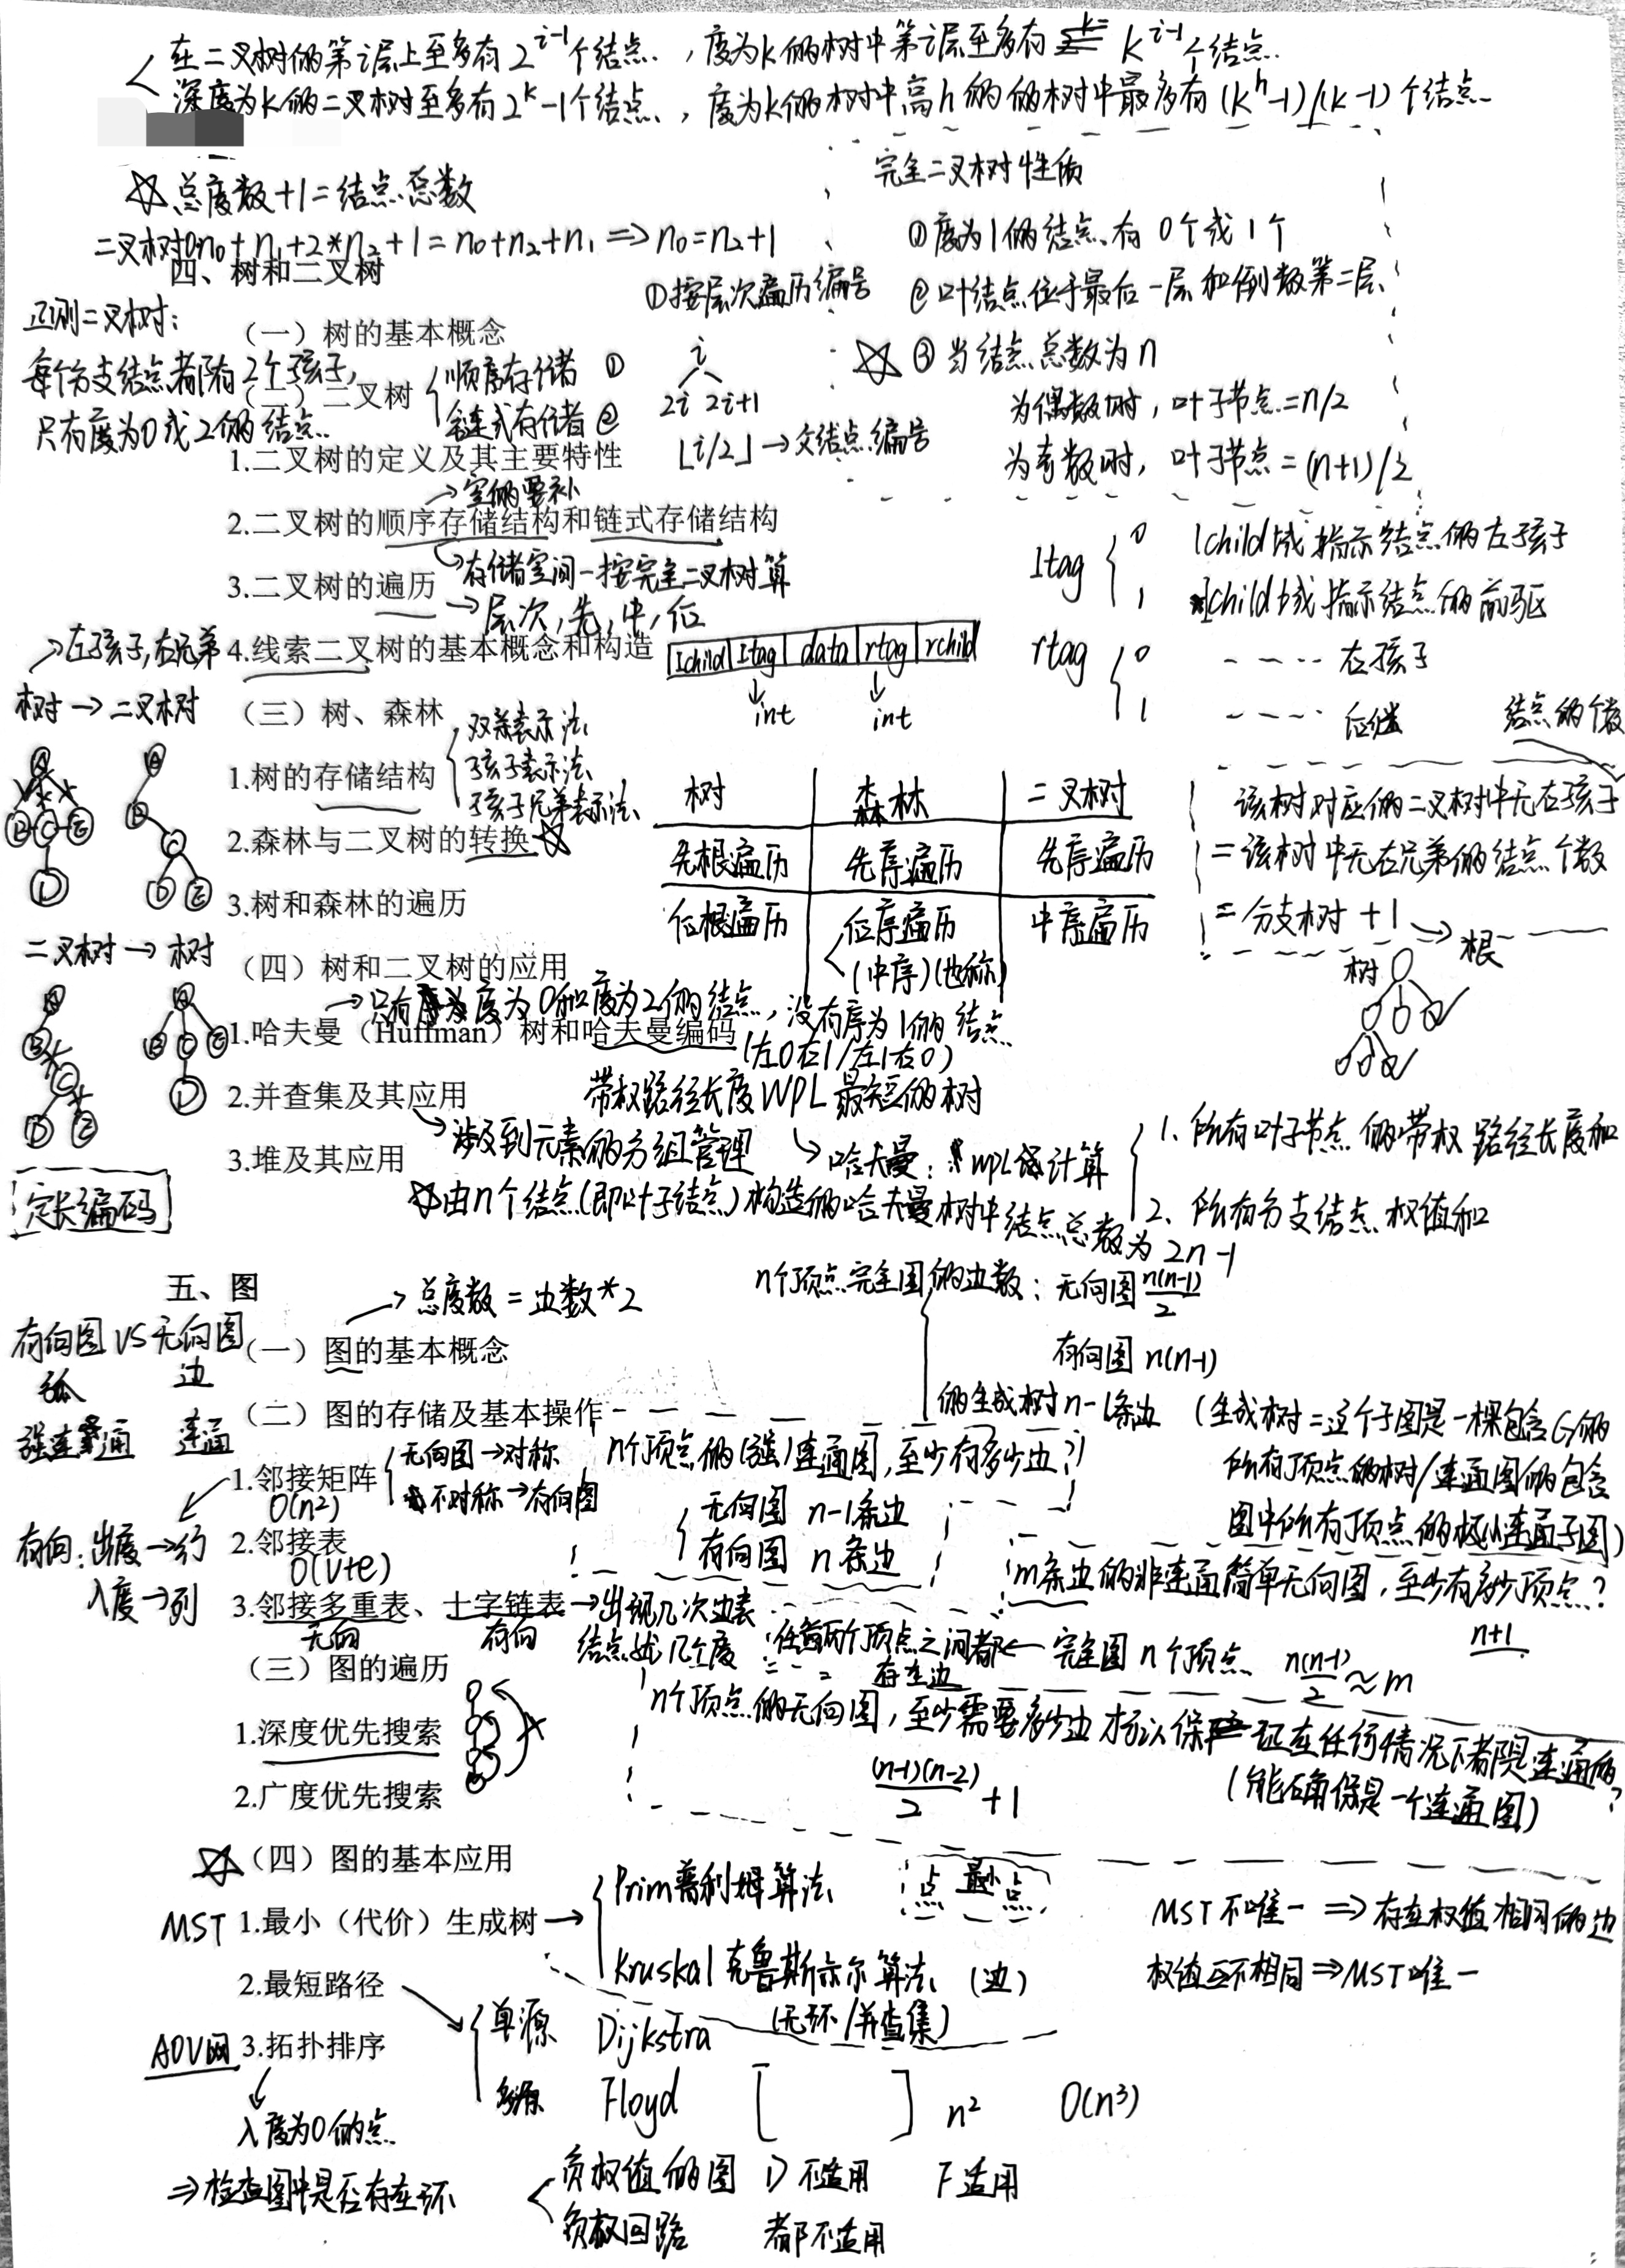 在二叉树的第i层上至多有 2^{i-1}个结点., 度为k的树中第i层至多有 k^{i-1}个结点.
深度为k的二叉树至多有2^k-1个结点., 度为k的树中高h的的树中最多有(k^h-1)/(k-1)个结点
☆总度数+1=结点总数
二叉树0n₀+n₁+2*n₂+1=n₀+n₂+n₁ => n₀=n₂+1
完全二叉树性质
①度为1的结点.有 0个或1个
②叶结点位于最后一层和倒数第二层.
☆③当结点总数为n
为偶数时, 叶子节点=n/2
为奇数时, 叶子节点=(n+1)/2
四、树和二叉树
正则二叉树:
每个分支结点都有2个孩子,
只有度为0或2的结点..
①按层次遍历编号
i
2i 2i+1
⌊i/2⌋→父结点编号
（一）树的基本概念
（二）二叉树
顺序存储 ①
链式存储 ②
1.二叉树的定义及其主要特性
→空的要补
2.二叉树的顺序存储结构和链式存储结构
存储空间-按完全二叉树算
3.二叉树的遍历
→层次,先,中,后
4.线索二叉树的基本概念和构造
lchild|ltag|data|rtag|rchild
int int
ltag 0 lchild域指示结点的左孩子
1 lchild域指示结点的前驱
rtag 0 ---- 右孩子
1 ---- 后继
→左孩子,右兄弟
树→二叉树
A
B C E
D
A
B
C
D E
（三）树、森林
1.树的存储结构
双亲表示法
孩子表示法
孩子兄弟表示法
2.森林与二叉树的转换☆
3.树和森林的遍历
树 森林 二叉树
先根遍历 先序遍历 先序遍历
后根遍历 后序遍历 中序遍历
(中序)(也称)
结点的个数
该树对应的二叉树中无右孩子
=该树中无右兄弟的结点个数
=分支树+1→根
树
二叉树→树
A
B
C
D E
A
B C E
D
（四）树和二叉树的应用
→只有度为0和度为2的结点, 没有度为1的结点
1.哈夫曼（Huffman）树和哈夫曼编码
(左0右1/左1右0)
带权路径长度WPL最短的树
2.并查集及其应用
涉及到元素的分组管理
3.堆及其应用
→哈夫曼: WPL计算
1、所有叶子节点的带权路径长度和
2、所有分支结点权值和
☆由n个结点(即叶子结点)构造的哈夫曼树中结点总数为2n-1
定长编码
五、图
→总度数=边数*2
n个顶点完全图的边数: 无向图 n(n-1)/2
有向图 n(n-1)
的生成树n-1条边 (生成树=这个子图是一棵包含G的
所有顶点的树/连通图的包含
图中所有顶点的极小连通子图)
有向图 VS 无向图
弧 边
强连通 连通
（一）图的基本概念
（二）图的存储及基本操作
1.邻接矩阵
O(n²)
无向图→对称
不对称→有向图
有向:出度→行
入度→列
2.邻接表
O(v+e)
3.邻接多重表、十字链表
无向 有向
→出现几次边表
结点就几个度
n个顶点的(强)连通图,至少有多少边?
无向图 n-1条边
有向图 n条边
m条边的非连通简单无向图,至少有多少顶点?
n+1
任意两个顶点之间都存在边←完全图 n个顶点 n(n-1)/2≈m
（三）图的遍历
1.深度优先搜索
2.广度优先搜索
n个顶点的无向图,至少需要多少边才可以保证在任何情况下都是连通的?
(n-1)(n-2)/2 +1
(能确保是一个连通图)
☆（四）图的基本应用
MST 1.最小（代价）生成树→
Prim普利姆算法
点 最小 点
Kruskal克鲁斯卡尔算法 (边)
(无环/并查集)
MST不唯一 => 存在权值相同的边
权值互不相同=>MST唯一
2.最短路径
单源 Dijkstra
多源 Floyd [ ] n² O(n³)
AOV网 3.拓扑排序
入度为0的点
=>检查图中是否存在环
负权值的图 D不适用 F适用
负权回路 都不适用